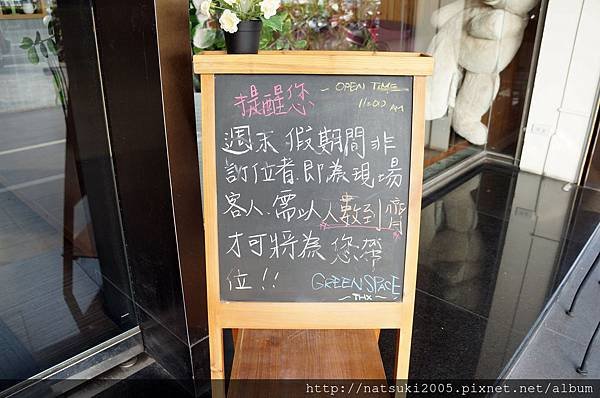 提醒您
~ OPEN TIME
11:00 AM
週末假期間非
訂位者.即為現場
客人.需以人數到齊
才可將為您帶
位!!
GREEN SPACE
~ THX ~
http://natsuki2005.pixnet.net/album